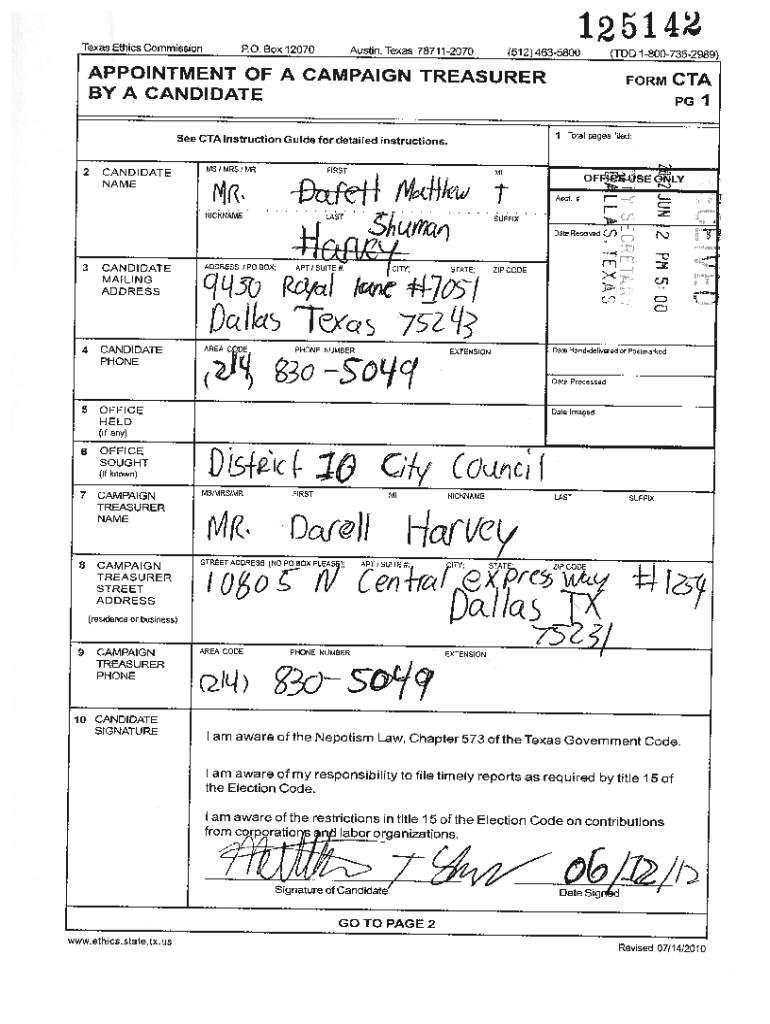 125142
Texas Ethics Commission P.O. Box 12070 Austin, Texas 78711-2070 (512) 463-5800 (TDD 1-800-735-2989)
APPOINTMENT OF A CAMPAIGN TREASURER
BY A CANDIDATE
FORM CTA
PG 1
See CTA Instruction Guide for detailed instructions.
1 Total pages filed:
2 CANDIDATE
NAME
MS / MRS / MR FIRST MI
MR. Darell Matthew T
NICKNAME LAST SUFFIX
Shuman
Harvey
OFFICE USE ONLY
Acct. #
Date Received
CITY SECRETARY
DALLAS, TEXAS
JUN 12 PM 5:00
3 CANDIDATE
MAILING
ADDRESS
ADDRESS / PO BOX; APT / SUITE #; CITY; STATE; ZIP CODE
9430 Royal lane #7051
Dallas Texas 75243
4 CANDIDATE
PHONE
AREA CODE PHONE NUMBER EXTENSION
(214) 830-5049
Date Hand-delivered or Postmarked
Date Processed
Date Imaged
5 OFFICE
HELD
(if any)
6 OFFICE
SOUGHT
(if known)
District 10 City Council
7 CAMPAIGN
TREASURER
NAME
MS/MRS/MR FIRST MI NICKNAME LAST SUFFIX
MR. Darell Harvey
8 CAMPAIGN
TREASURER
STREET
ADDRESS
(residence or business)
STREET ADDRESS (NO PO BOX PLEASE); APT / SUITE #; CITY; STATE; ZIP CODE
10805 N Central expressway #1254
Dallas TX
75231
9 CAMPAIGN
TREASURER
PHONE
AREA CODE PHONE NUMBER EXTENSION
(214) 830-5049
10 CANDIDATE
SIGNATURE
I am aware of the Nepotism Law, Chapter 573 of the Texas Government Code.
I am aware of my responsibility to file timely reports as required by title 15 of
the Election Code.
I am aware of the restrictions in title 15 of the Election Code on contributions
from corporations and labor organizations.
06/12/12
Signature of Candidate Date Signed
GO TO PAGE 2
www.ethics.state.tx.us Revised 07/14/2010